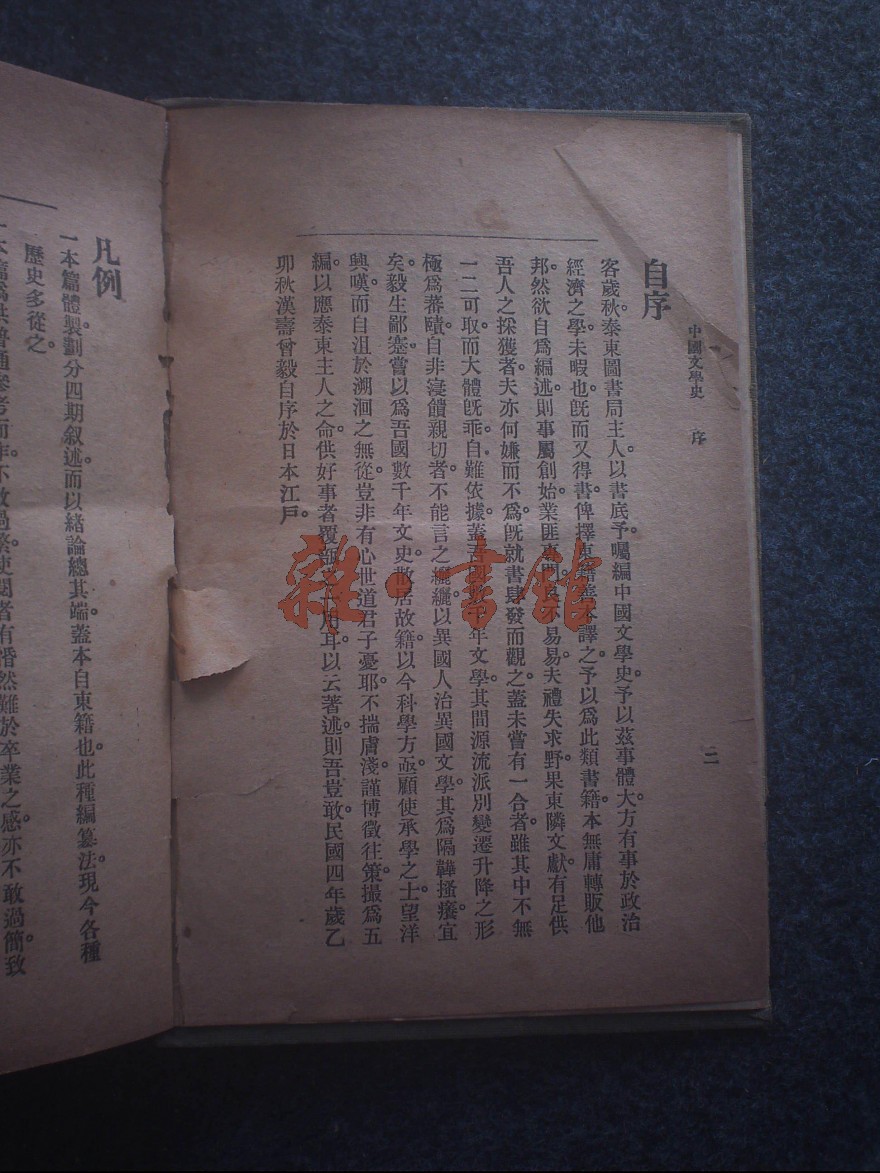 中國文學史　序
二
自序
客歲秋。泰東圖書局主人以書底予。囑編中國文學史。予以茲事體大。方有事於政治
經濟之學。未暇也。旣而又得書。俾擇東籍善本譯之。予以爲此類書籍。本無庸轉販他
邦。然欲自爲編述。則事屬創始。業匪專門。良不易易。夫禮失求野。果東隣文獻。有足供
吾人之採獲者。夫亦何嫌而不爲。旣就書肆發而觀之。蓋未嘗有一合者。雖其中不無
一二可取。而大體旣乖。自難依據。蓋吾國數千年文學。其間源流派別變遷升降之形。
極爲蕃賾。自非寢饋親切者。不能言之纚纚。以異國人治異國文學。其爲隔鞾搔癢宜
矣。毅生鄙蹇。嘗以爲吾國數千年文史。散居故籍。以今科學方亟。顧使承學之士。望洋
興嘆。而自沮於溯洄之無從。豈非有心世道君子憂耶。不揣膚淺。謹博徵往策。撮爲五
編。以應泰東主人之命。供好事者覆瓿之用耳。以云著述。則吾豈敢。民國四年歲乙
卯秋漢壽曾毅自序於日本江戶。
凡例
一本篇體製。劃分四期叙述。而以緒論總其端。蓋本自東籍也。此種編纂法。現今各種
歷史多從之。
過繁。使閱者有惛然難於卒業之感。亦不敢過簡。致
雜·書館